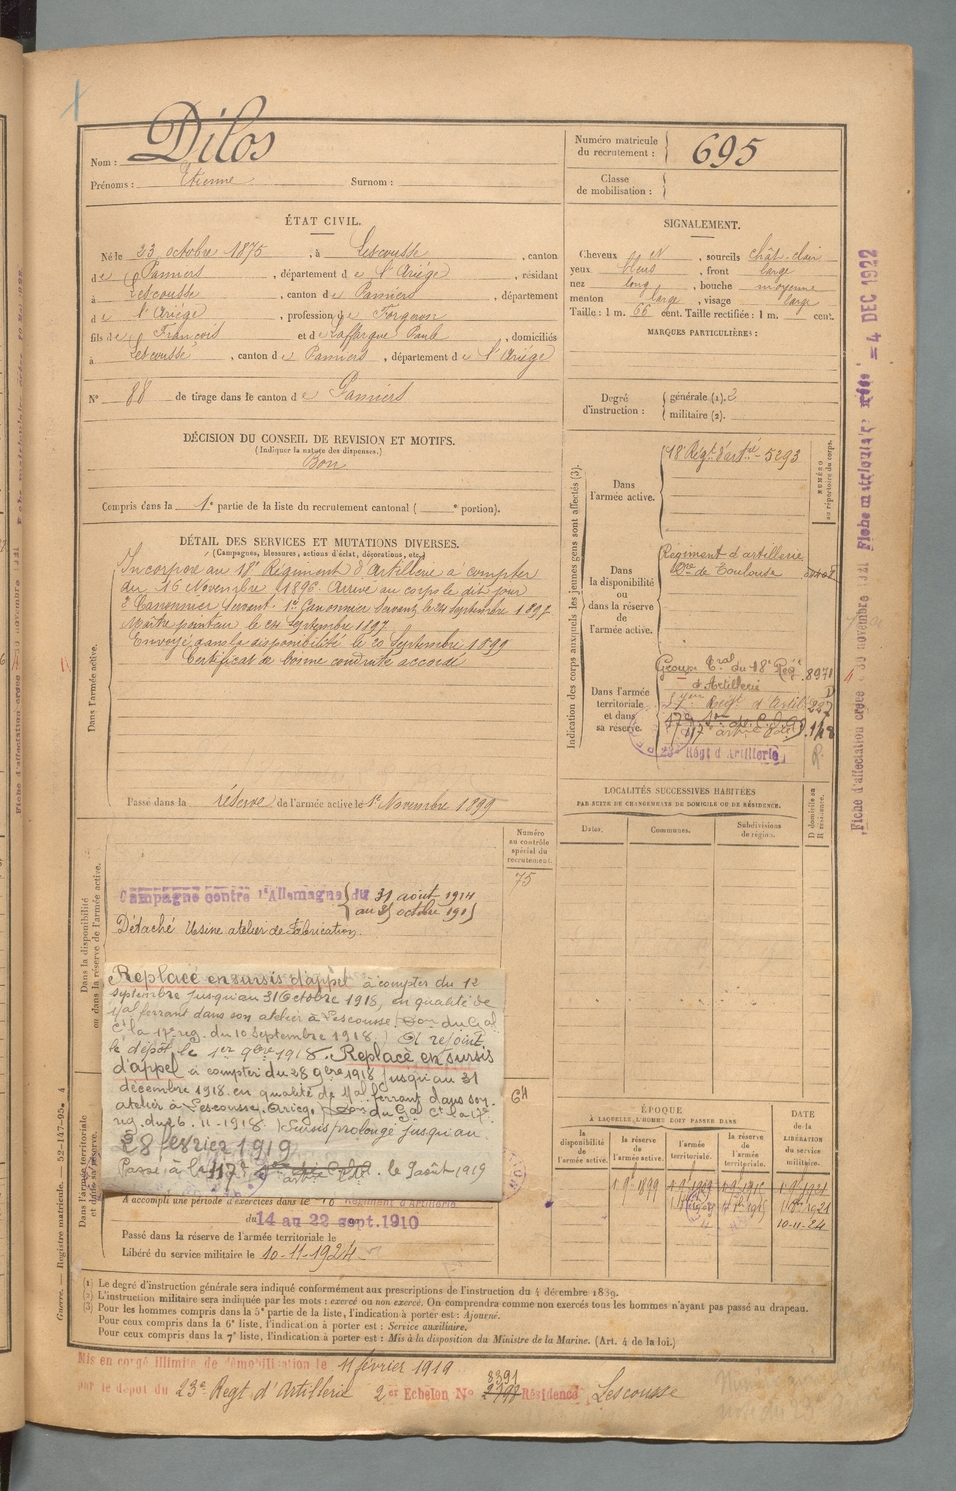 Nom : Dilos
Prénoms : Etienne Surnom :
Numéro matricule du recrutement : 695
Classe de mobilisation :
ÉTAT CIVIL.
Né le 23 octobre 1875, à Lescousse, canton
de Pamiers, département de l'Ariège, résidant
à Lescousse, canton de Pamiers, département
de l'Ariège, profession de Forgeron
fils de François et de Laffargue Paule, domiciliés
à Lescousse, canton de Pamiers, département de l'Ariège
N° 88 de tirage dans le canton de Pamiers
DÉCISION DU CONSEIL DE REVISION ET MOTIFS.
(Indiquer la nature des dispenses.)
Bon
Compris dans la 1e partie de la liste du recrutement cantonal ( e portion).
SIGNALEMENT.
Cheveux N, sourcils chât. clair
yeux bleus, front large
nez long, bouche moyenne
menton large, visage large
Taille : 1 m. 66 cent. Taille rectifiée : 1 m. cent.
MARQUES PARTICULIÈRES :
Degré d'instruction : générale (1). 3
militaire (2).
DÉTAIL DES SERVICES ET MUTATIONS DIVERSES.
(Campagnes, blessures, actions d'éclat, décorations, etc.)
Dans l'armée active.
Incorporé au 18e Régiment d'Artillerie à compter
du 16 Novembre 1896. Arrivé au corps le dit jour
2e Canonnier Servant. 1er Canonnier Servant le 24 Septembre 1897
Maître pointeur le 24 Septembre 1897
Envoyé dans la disponibilité le 20 Septembre 1899
Certificat de bonne conduite accordé
Passé dans la réserve de l'armée active le 1er Novembre 1899
Indication des corps auxquels les jeunes gens sont affectés (3).
NUMÉRO au répertoire du corps.
Dans l'armée active.
18e Régt d'artie 5293
Dans la disponibilité ou dans la réserve de l'armée active.
Régiment d'artillerie
de Toulouse
Dans l'armée territoriale et dans sa réserve.
Groupe Tral du 18e Régt 8971
d'Artillerie
Régt d'Artil 227
23e Régt d'Artillerie
LOCALITÉS SUCCESSIVES HABITÉES
PAR SUITE DE CHANGEMENTS DE DOMICILE OU DE RÉSIDENCE.
Dates.
Communes.
Subdivisions de région.
D domicile ou R résidence.
Dans la disponibilité ou dans la réserve de l'armée active.
Numéro au contrôle spécial du recrutement.
75
Campagne contre l'Allemagne du 31 août 1914
au 31 octobre 1915
Détaché Usine atelier de Fabrication.
Replacé en sursis d'appel à compter du 12
septembre jusqu'au 31 Octobre 1918, en qualité de
Mal ferrant dans son atelier à Lescousse. Don du Gal
Ct la 17e reg. du 10 Septembre 1918. A rejoint
le dépôt le 1er 9bre 1918. Replacé en sursis
d'appel à compter du 28 9bre 1918 jusqu'au 31
décembre 1918 en qualité de Mal ferrant dans son
atelier à Lescousse. Ariège. Don du Gal Ct la 17e
reg. du 6.11-1918. Sursis prolongé jusqu'au
28 février 1919
Passé à le 117e le 9 août 1919
64
Dans l'armée territoriale et dans sa réserve.
A accompli une période d'exercices dans le Régiment d'Artillerie
du 14 au 22 sept. 1910
Passé dans la réserve de l'armée territoriale le
Libéré du service militaire le 10-11-1924
ÉPOQUE
A LAQUELLE L'HOMME DOIT PASSER DANS
la disponibilité de l'armée active.
la réserve de l'armée active.
l'armée territoriale.
la réserve de l'armée territoriale.
DATE de la LIBÉRATION du service militaire.
10-11-24
(1) Le degré d'instruction générale sera indiqué conformément aux prescriptions de l'instruction du 4 décembre 1889.
(2) L'instruction militaire sera indiquée par les mots : exercé ou non exercé. On comprendra comme non exercés tous les hommes n'ayant pas passé au drapeau.
(3) Pour les hommes compris dans la 5e partie de la liste, l'indication à porter est : Ajourné.
Pour ceux compris dans la 6e liste, l'indication à porter est : Service auxiliaire.
Pour ceux compris dans la 7e liste, l'indication à porter est : Mis à la disposition du Ministre de la Marine. (Art. 4 de la loi.)
Mis en congé illimité de démobilisation le 11 février 1919
par le dépôt du 23e Regt d'Artillerie 2er Echelon N° 8391 Résidence Lescousse
Guerre. — Registre matricule. — 52-147-95.
4
= 4 DEC 1922